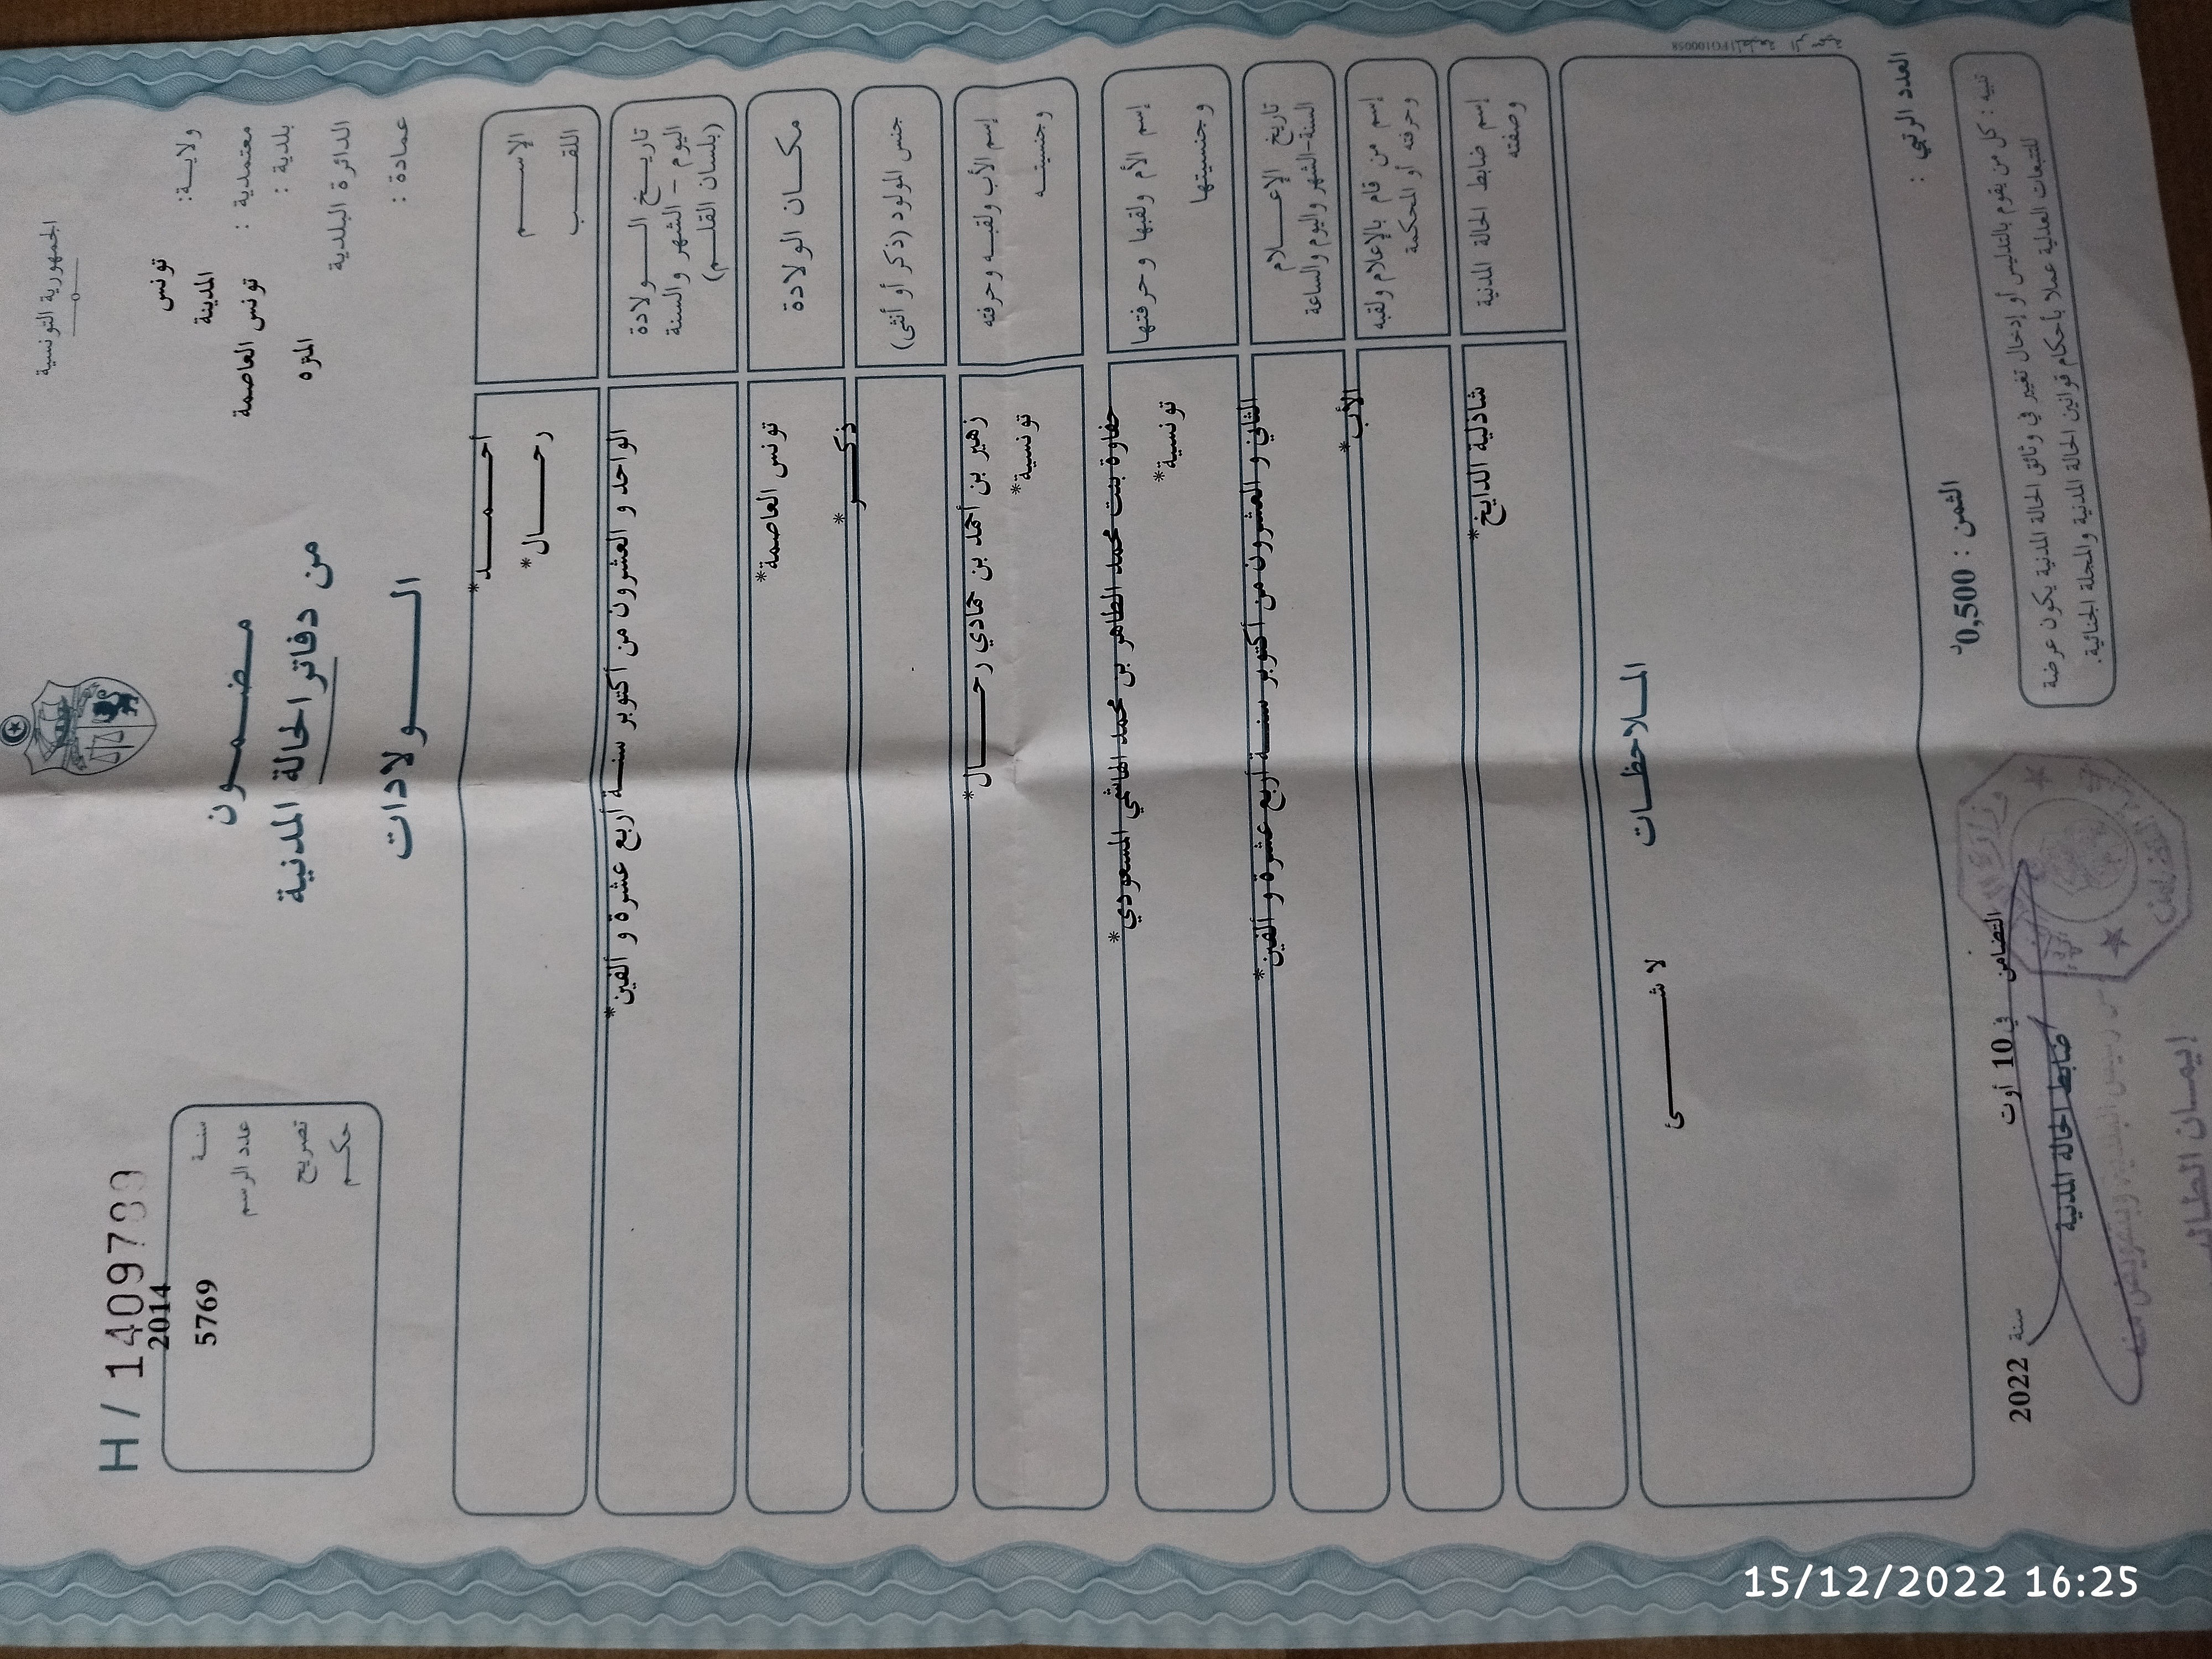 الجمهورية التونسية
ولاية: تونس
المدينة
معتمدية : تونس العاصمة
بلدية :
المنزه
الدائرة البلدية
عمادة :
مضمون
من دفاتر الحالة المدنية
الولادات
H / 14097
2014
سنة
5769
عدد الرسم
تصريح
حكم
الإسم
أحمد*
اللقب
رحال*
تاريخ الولادة
اليوم - الشهر والسنة
(بلسان القلم)
الواحد و العشرون من أكتوبر سنة أربع عشرة و ألفين*
مكان الولادة
تونس العاصمة*
جنس المولود (ذكر أو أنثى)
ذكر*
إسم الأب ولقبه وحرفته
زهير بن أحمد بن حمادي رحال*
وجنسيته
تونسية*
إسم الأم ولقبها وحرفتها
حفاوة بنت محمد الطاهر بن محمد الهاشمي المسعودي*
وجنسيتها
تونسية*
تاريخ الإعلام
السنة-الشهر واليوم والساعة
الثاني و العشرون من أكتوبر سنة أربع عشرة و ألفين*
إسم من قام بالإعلام ولقبه
وحرفته أو المحكمة
الأب*
إسم ضابط الحالة المدنية
وصفته
شاذلية الدايخ*
الملاحظات
لا شئ
العدد الرتبي :
الثمن : 0,500د
تنبيه : كل من يقوم بالتدليس أو إدخال تغيير في وثائق الحالة المدنية يكون عرضة
للتتبعات العدلية عملا بأحكام قوانين الحالة المدنية والمجلة الجنائية.
التضامن في 10 أوت سنة 2022
ضابط الحالة المدنية
إيمان
15/12/2022 16:25